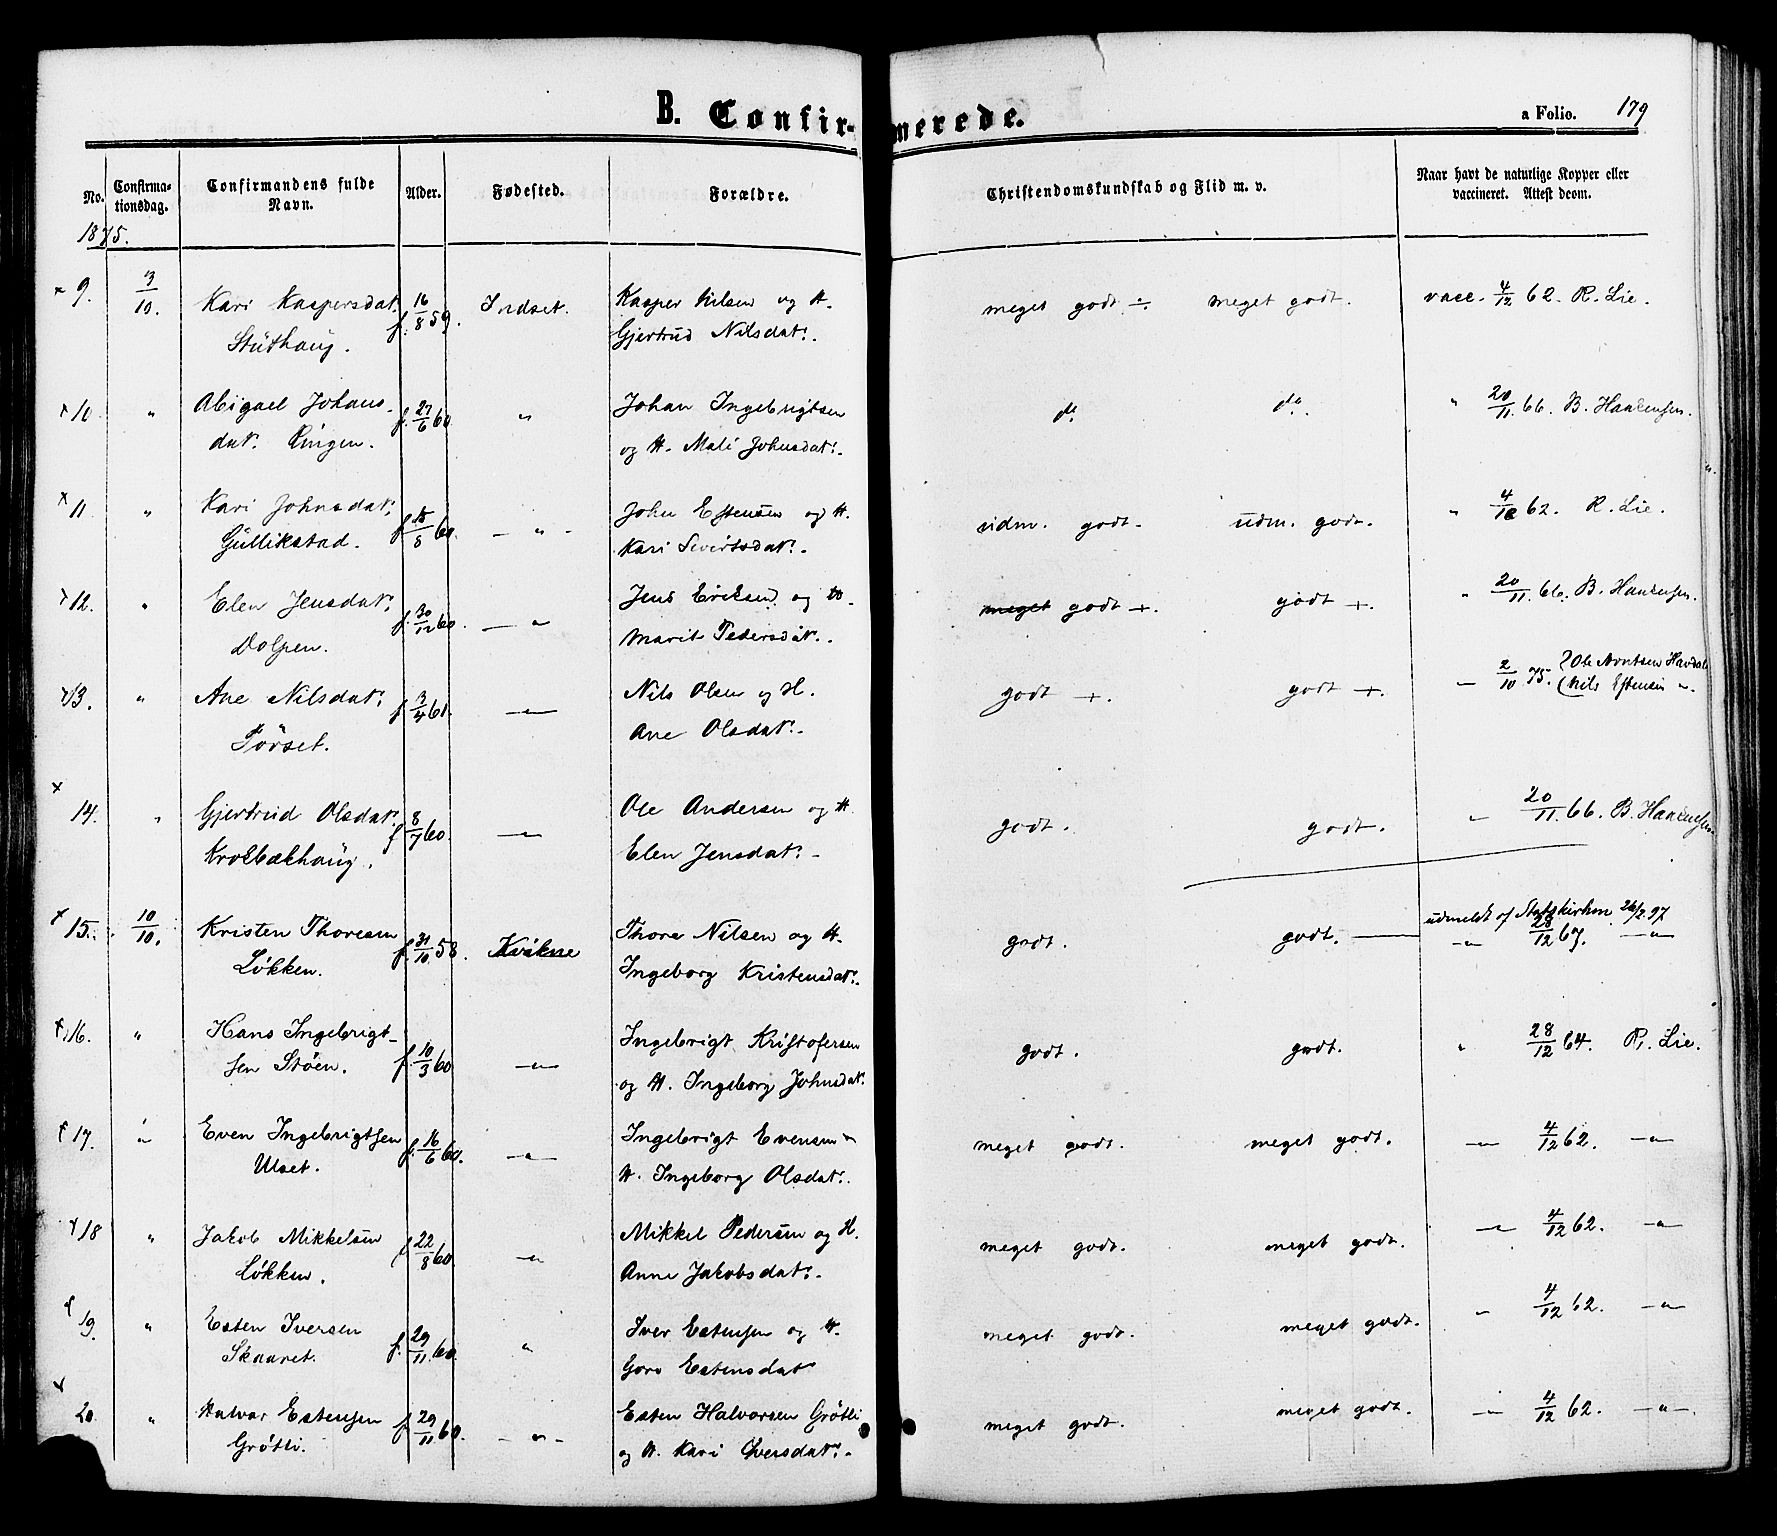 B. Confir-
merede.
a Folio. 179
No.
Confirma-
tionsdag.
Confirmandens fulde
Navn.
Alder.
Fødested.
Forældre.
Christendomskundskab og Flid m. v.
Naar havt de naturlige Kopper eller
vaccineret. Attest derom.
1875.
× 9. 3/10. Kari Kaspersdat. f. 16/8 59. Indset. Kasper Nilsen og H. meget godt ÷ meget godt. vacc. 4/12 62. R. Lie.
Stuthaug. Gjertrud Nilsdat:.
× 10. " Abigael Johans- f. 27/6 60 " Johan Ingebrigtsen do. do. " 20/11. 66. B. Haakensen.
dat. Ringen. og H. Mali Johnsdat:.
× 11 " Kari Johnsdat. f. 18/8 60. — " - John Estensen og H. udm. godt. udm. godt. " 4/12 62. R. Lie.
Gullikstad. Kari Sivertsdat:.
× 12. " Elen Jensdat. f. 30/12 60. — " Jens Eriksen og H. meget godt +. godt +. " 20/11. 66. B. Haakensen.
Dolpen. Marit Pedersdat.
× 13. " Ane Nilsdat. f. 3/4 61. —"— Nils Olsen og H. godt +. godt +. — 2/10 75. Ole Arntsen Havdal
Törset. Ane Olsdat:. Nils Estensen ".
× 14. " Gjertrud Olsdat. f 8/7 60. —"— Ole Andersen og H godt. godt. " 20/11. 66. B. Haakensen
Krokbækhaug. Elen Jensdat:.
udmeldt af Statskirken 26/2 97
× 15. 10/10. Kristen Thoresen f. 31/10 58. Kvikne Thore Nilsen og H. godt. godt. —"— 28/12 67. —"—
Løkken. Ingeborg Kristensdat:.
× 16. " Hans Ingebrigt- f. 10/3 60 —"— Ingebrigt Kristofersen godt. godt. " 28/12 64. R. Lie.
sen Støen. og H. Ingeborg Johnsdat.
× 17. " Even Ingebrigtsen f. 16/6 60. —"— Ingebrigt Evensen " meget godt. meget godt. —"— 4/12 62. —"—
Uset. H. Ingeborg Olsdat:.
× 18 " Jakob Mikkelsen f. 22/8 60 —"— Mikkel Pedersen og H. meget godt. meget godt. —"— 4/12 62. —"—
Løkken. Anne Jakobsdat:.
× 19. " Esten Iversen f. 29/11. 60. " Iver Estensen og H. meget godt. meget godt. —"— 4/12 62. —"—
Skaaret. Goro Estensdat
× 20. " Halvar Estensen f. 29/11. 60. —"— Esten Halvorsen Grøtli meget godt. meget godt. —"— 4/12 62. —"—.
Grøtli. og H. Kari Iversdat:.